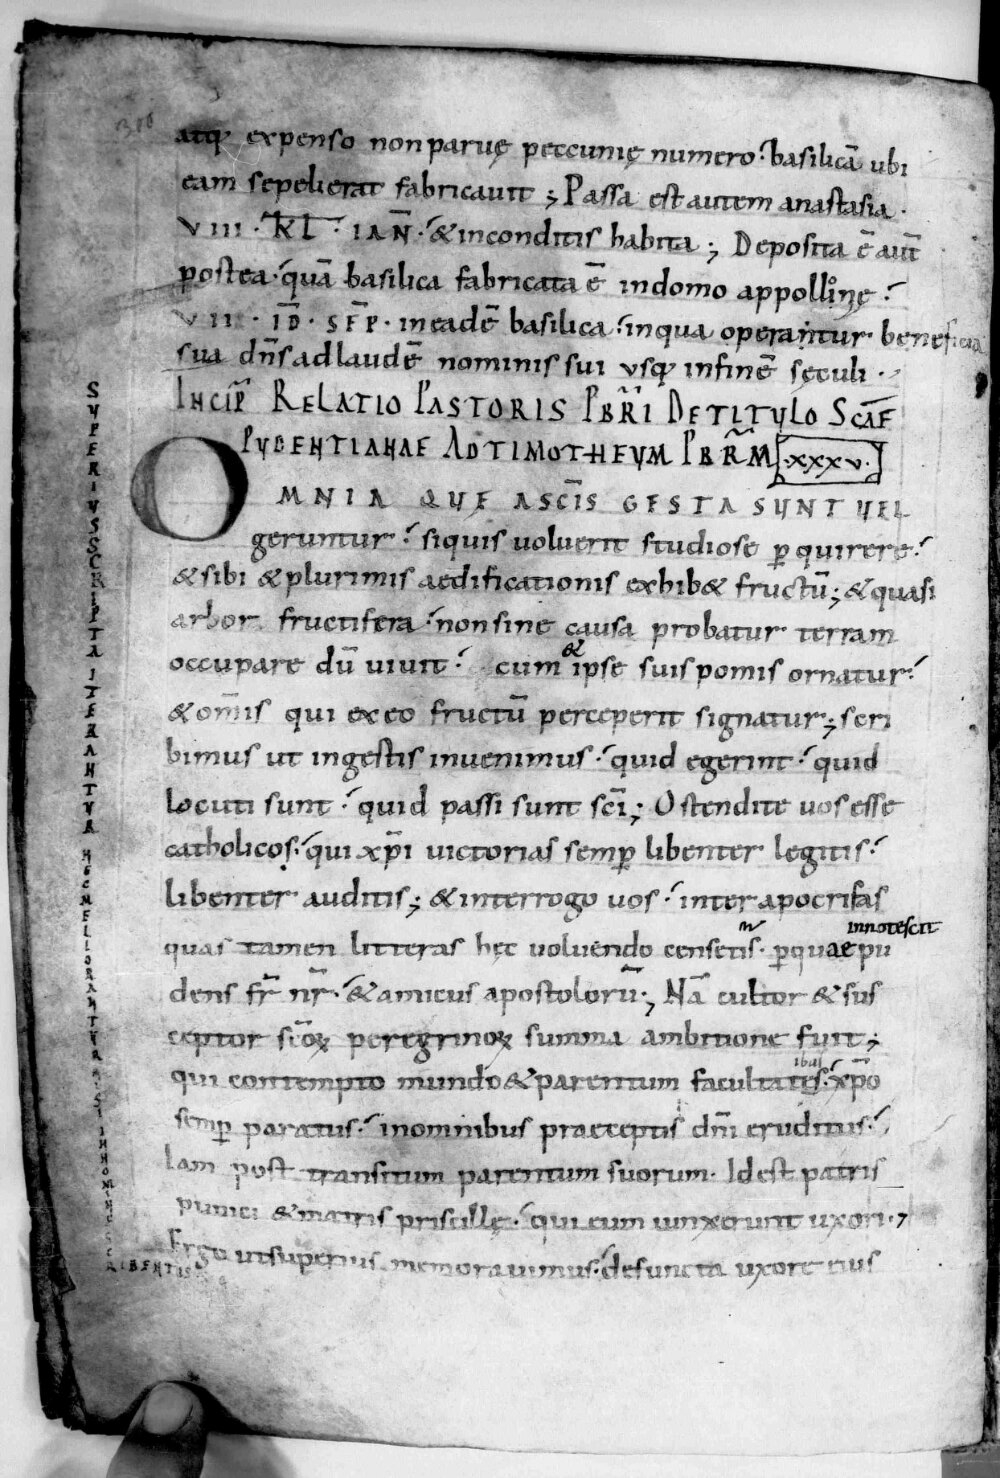 310
atq; expenso non paruę peccunię numero basilicā ubi
eam sepelierat fabricauit; Passa est autem anastasia·
VIII·K̅L̅·IAN̅· & inconditis habita; Deposita ē aut̄
postea· quā basilica fabricata ē indomo appollinę
VII·ID̅·SEP̅· in eadē basilica inqua operantur beneficia
sua dn̄s ad laudē nominis sui usq; in finē sęculi·
INCIP̅ RELATIO PASTORIS PB̅RI DE TITULO SCAE̅
PUDENTIANAE AD TIMOTHEUM PB̅RM ·XXXV·
OMNIA QUE A SC̅IS GESTA SUNT UEL
geruntur siquis uoluerit studiose ꝑquirere
& sibi & plurimis aedificationis exhib& fructū; & quasi
arbor fructifera non sine causa probatur terram
occupare dū uiuit cum & ipse suis pomis ornatur
& om̄is qui ex eo fructū perceperit signatur; scri
bimus ut in gestis inuenimus quid egerint quid
locuti sunt quid passi sunt sc̄i; Ostendite uos esse
catholicos· qui xp̄i uictorias semꝑ libenter legitis
libenter auditis; & interrogo uos inter apocrifas
innotescit
quas tamen litteras hęc uoluendo censetis· ꝑquae pu
dens fr̄ nr̄· & amicus apostolorū; Nā cultor & sus
ceptor sc̄oꝝ peregrinoꝝ summa ambitione fuit;
ibus
qui contempto mundo & parentum facultatis· xp̄o
semꝑ paratus· in omnibus praeceptis dn̄i eruditus·
Iam post transitum parentum suorum· Idest patris
punici & matris priscillę· qui eum iunxerunt uxori·
Ergo ut superius memorauimus· defuncta uxore eius
SUPERIUS SCRIPTA ITERANTUR NEC MELIORANTUR